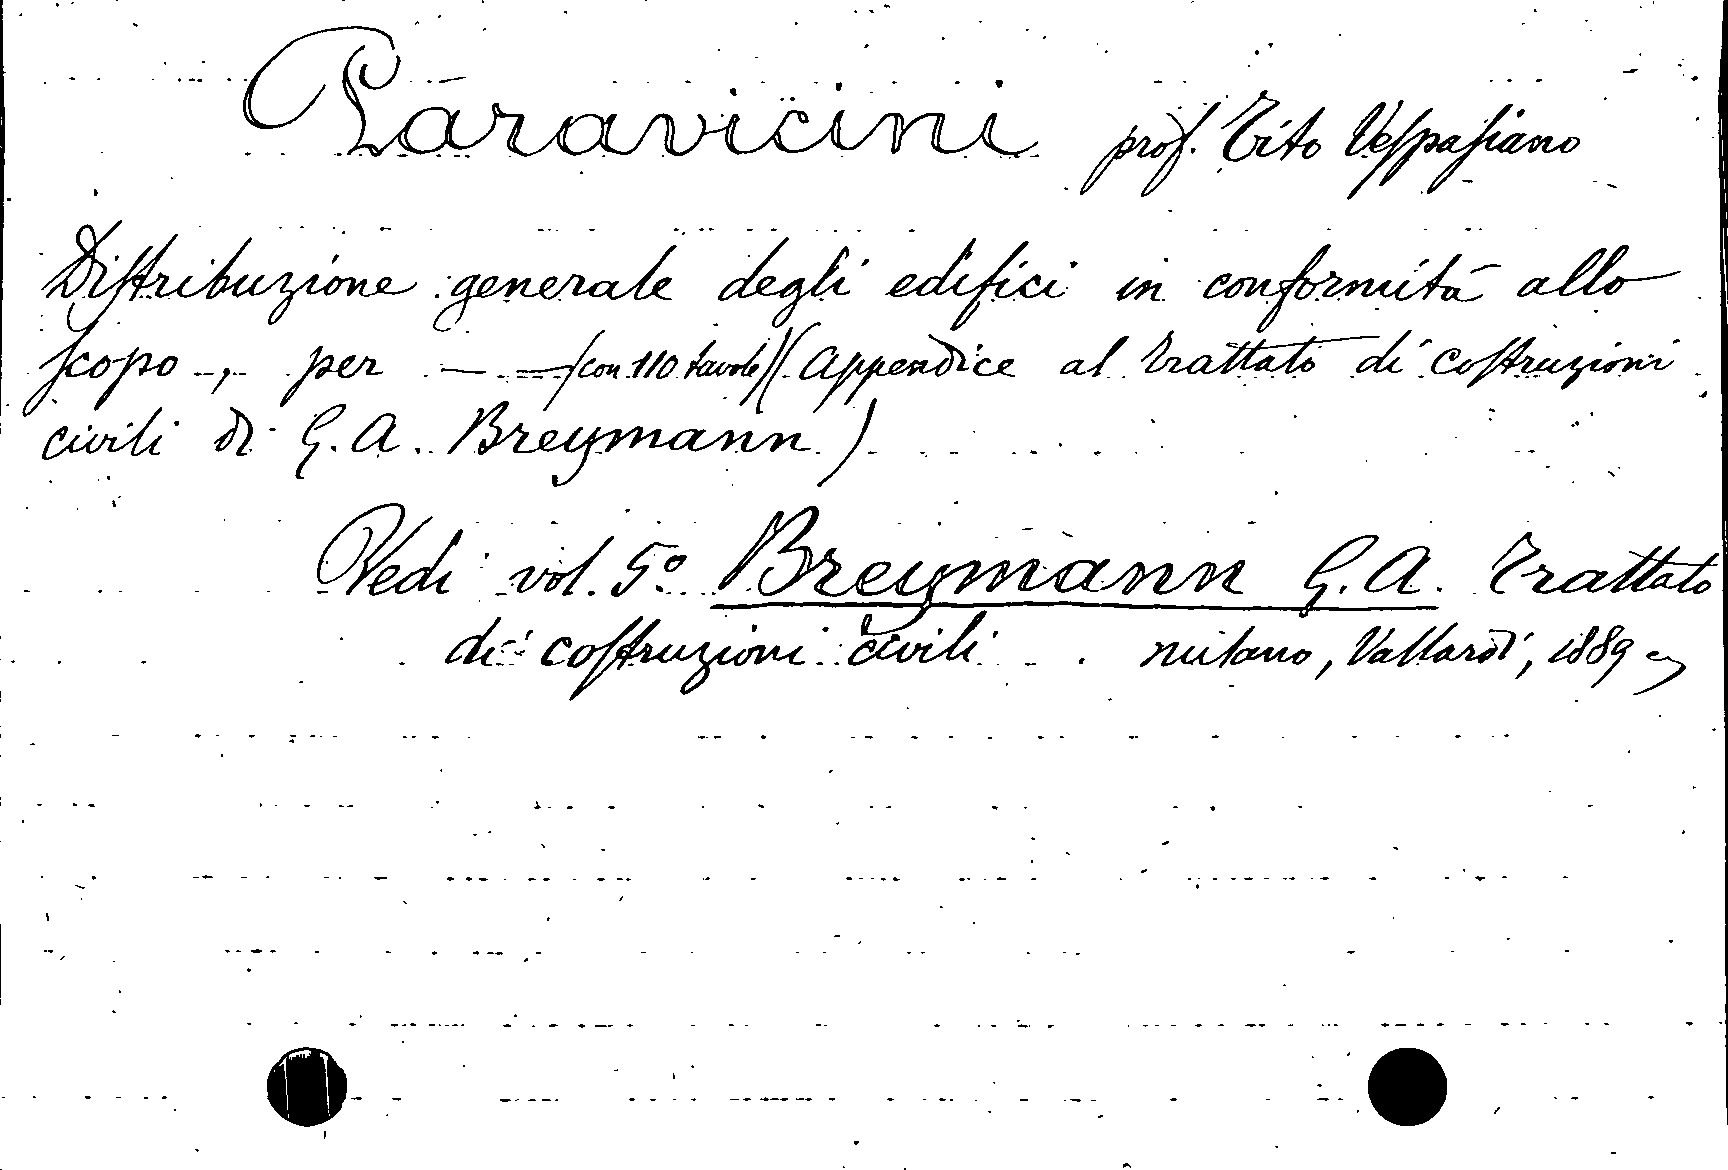 Paravicini prof. Tito Vespasiano
Distribuzione generale degli edifici in conformità allo
scopo, per — (con 110 tavole) (Appendice al trattato di costruzioni
civili di G. A. Breymann)
Vedi vol. 5° Breymann G. A. Trattato
di costruzioni civili. Milano, Vallardi, 1889